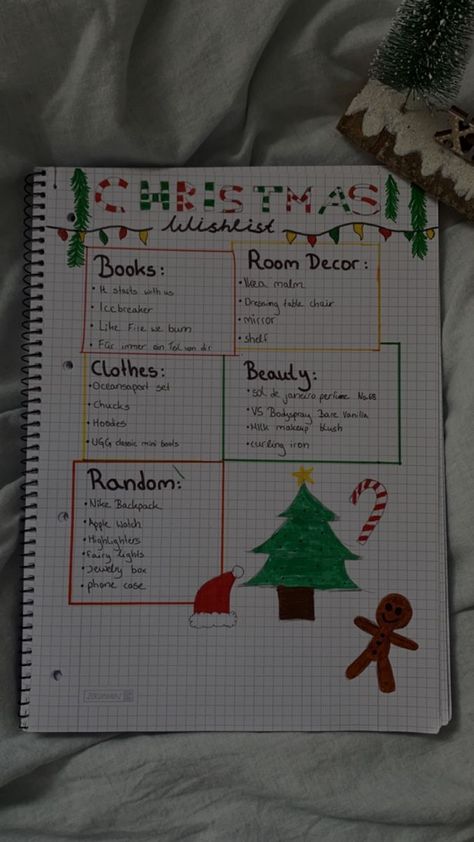 CHRISTMAS
Wishlist
Books:
• It starts with us
• Icebreaker
• Like Fire we burn
• Für immer ein Teil von dir
Room Decor:
• Ikea malm
• Dressing table chair
• mirror
• shelf
Clothes:
• Oceansapart set
• Chucks
• Hoodies
• UGG classic mini boots
Beauty:
• Sol de janeiro perfume No. 68
• VS Bodyspray Bare Vanilla
• Milk makeup blush
• curling iron
Random:
• Nike Backpack
• Apple Watch
• Highlighters
• Fairy lights
• Jewelry box
• phone case